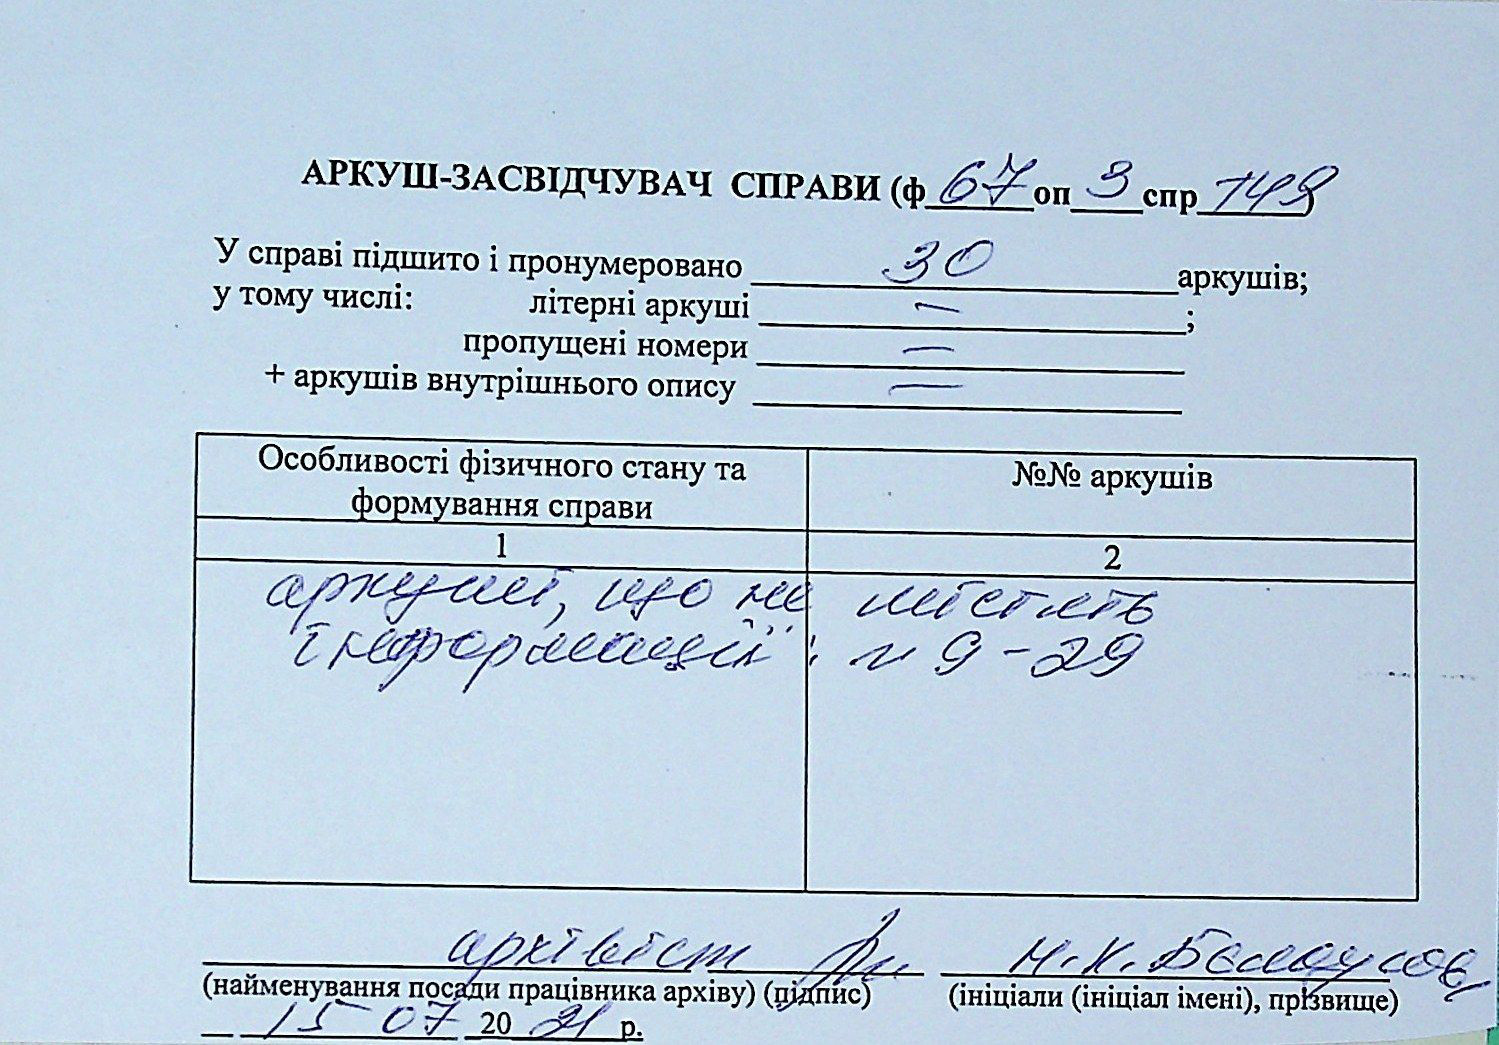 АРКУШ-ЗАСВІДЧУВАЧ СПРАВИ (ф 67 оп 3 спр 149)
У справі підшито і пронумеровано 30 аркушів;
у тому числі: літерні аркуші — ;
пропущені номери —
+ аркушів внутрішнього опису —
Особливості фізичного стану та формування справи №№ аркушів
1 2
аркуші, що не містять
інформації: 9-29
архівіст Н.К. Бєлоусова
(найменування посади працівника архіву) (підпис) (ініціали (ініціал імені), прізвище)
15 07 2021 р.